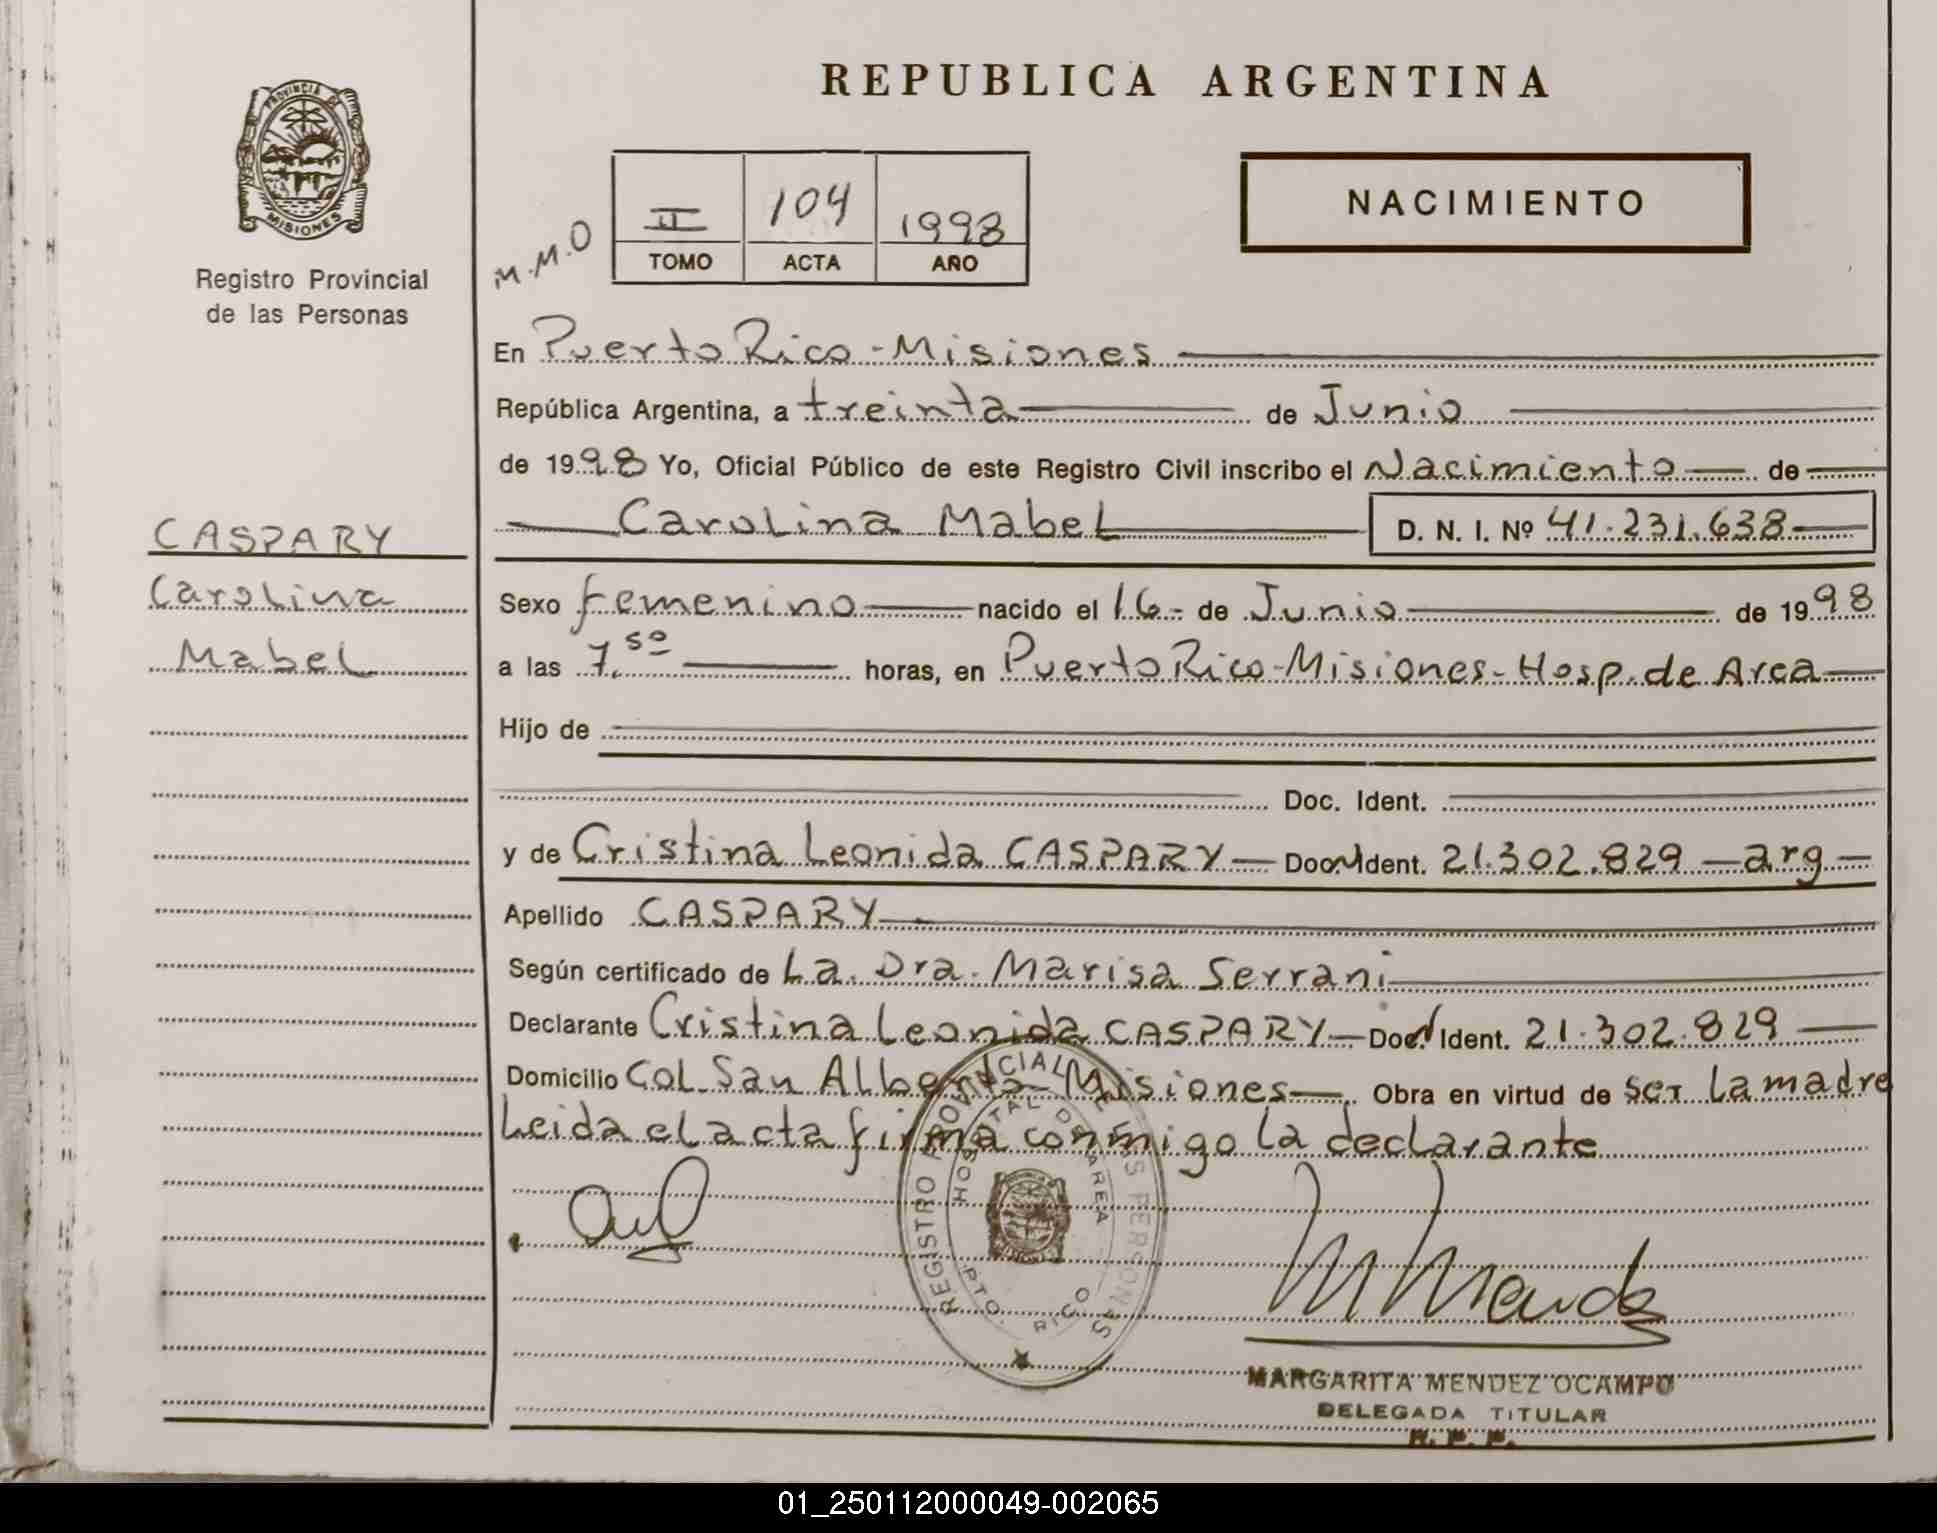 REPUBLICA ARGENTINA
PROVINCIA DE
MISIONES
Registro Provincial
de las Personas
M.M.O
II 104 1998
TOMO ACTA AÑO
NACIMIENTO
En Puerto Rico - Misiones
República Argentina, a treinta de Junio
de 1998 Yo, Oficial Público de este Registro Civil inscribo el Nacimiento de
Carolina Mabel D. N. I. Nº 41.231.638
CASPARY
Carolina
Mabel
Sexo femenino nacido el 16- de Junio de 1998
a las 7.50 horas, en Puerto Rico - Misiones - Hosp. de Area
Hijo de
Doc. Ident.
y de Cristina Leonida CASPARY Doc. Ident. 21.302.829 - arg
Apellido CASPARY
Según certificado de La. Dra. Marisa Serrani
Declarante Cristina Leonida CASPARY Doc. Ident. 21.302.829
Domicilio Col. San Alberto - Misiones Obra en virtud de ser la madre
Leida el acta firma conmigo la declarante
REGISTRO PROVINCIAL DE LAS PERSONAS
HOSPITAL DE AREA
PTO. RICO
MARGARITA MENDEZ OCAMPO
DELEGADA TITULAR
R. P. P.
01_250112000049-002065